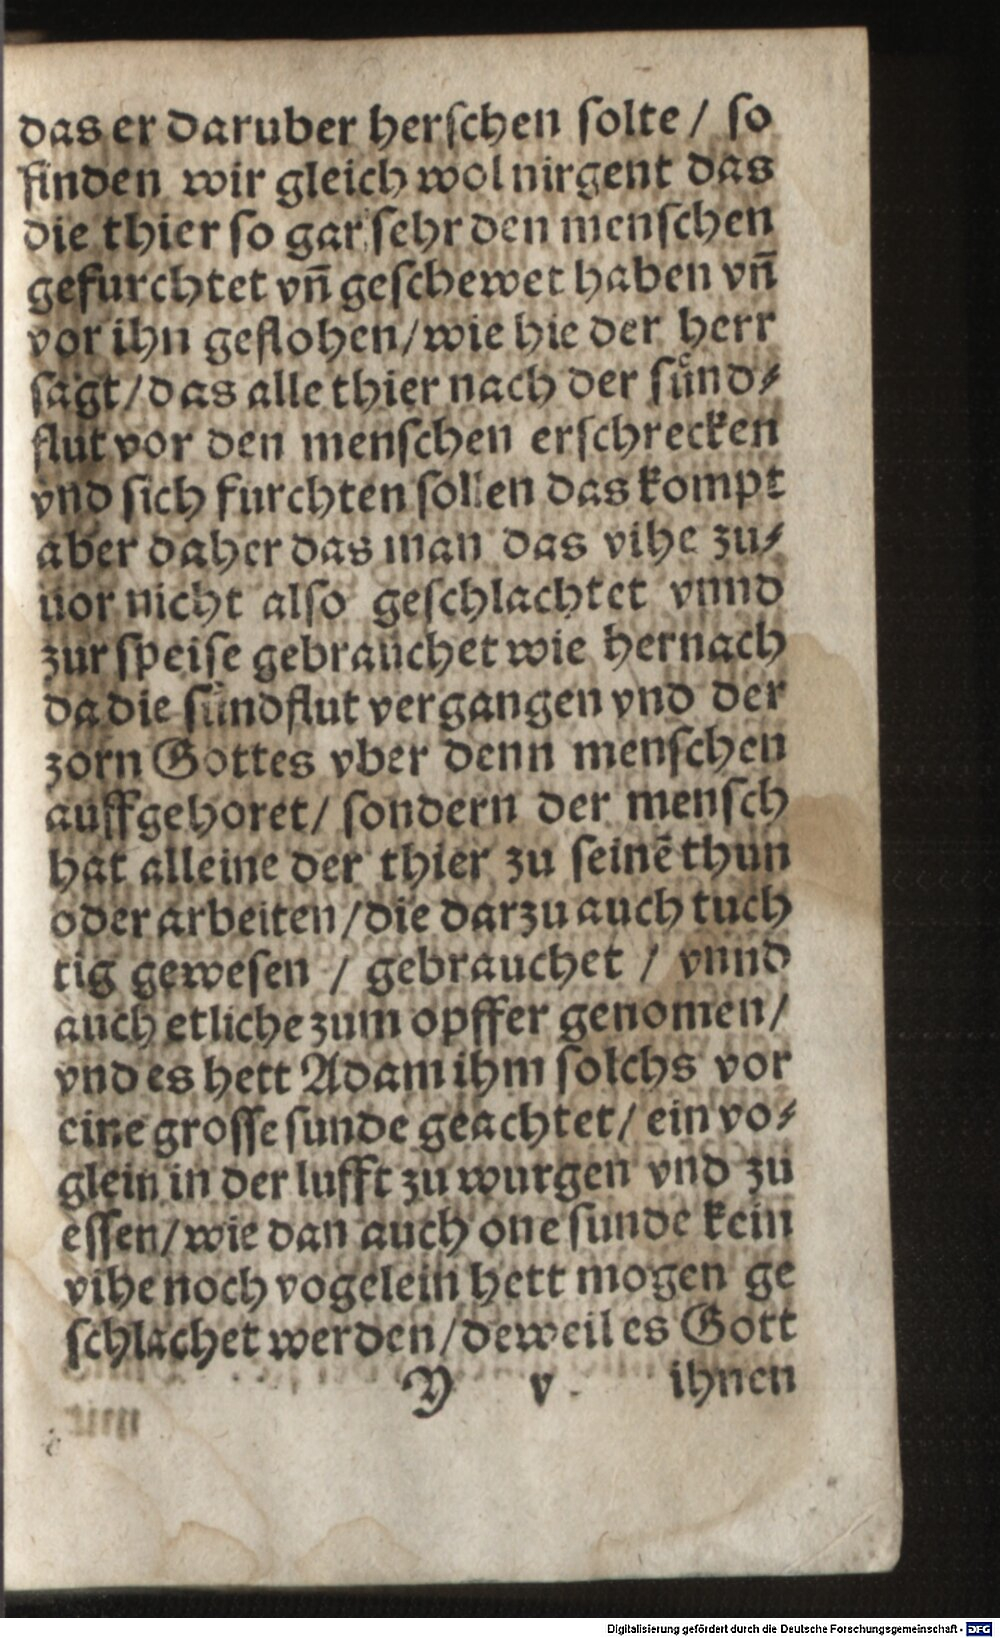 das er daruber herschen solte / so
finden wir gleich wol nirgent das
die thier so gar sehr den menschen
gefurchtet vn̄ geschewet haben vn̄
vor ihn geflohen / wie hie der herr
sagt / das alle thier nach der suͤnd⸗
flut vor den menschen erschrecken
vnd sich furchten sollen das kompt
aber daher das man das vihe zu⸗
uor nicht also geschlachtet vnnd
zur speise gebrauchet wie hernach
da die suͤndflut vergangen vnd der
zorn Gottes vber denn menschen
auffgehoret / sondern der mensch
hat alleine der thier zu seinē thun
oder arbeiten / die darzu auch tuch
tig gewesen / gebrauchet / vnnd
auch etliche zum opffer genomen /
vnd es hett Adam ihm solchs vor
eine grosse sunde geachtet / ein vo⸗
glein in der lufft zu wurgen vnd zu
essen / wie dan auch one sunde kein
vihe noch vogelein hett mogen ge
schlachet werden / deweil es Gott
Y v ihnen
Digitalisierung gefördert durch die Deutsche Forschungsgemeinschaft - DFG